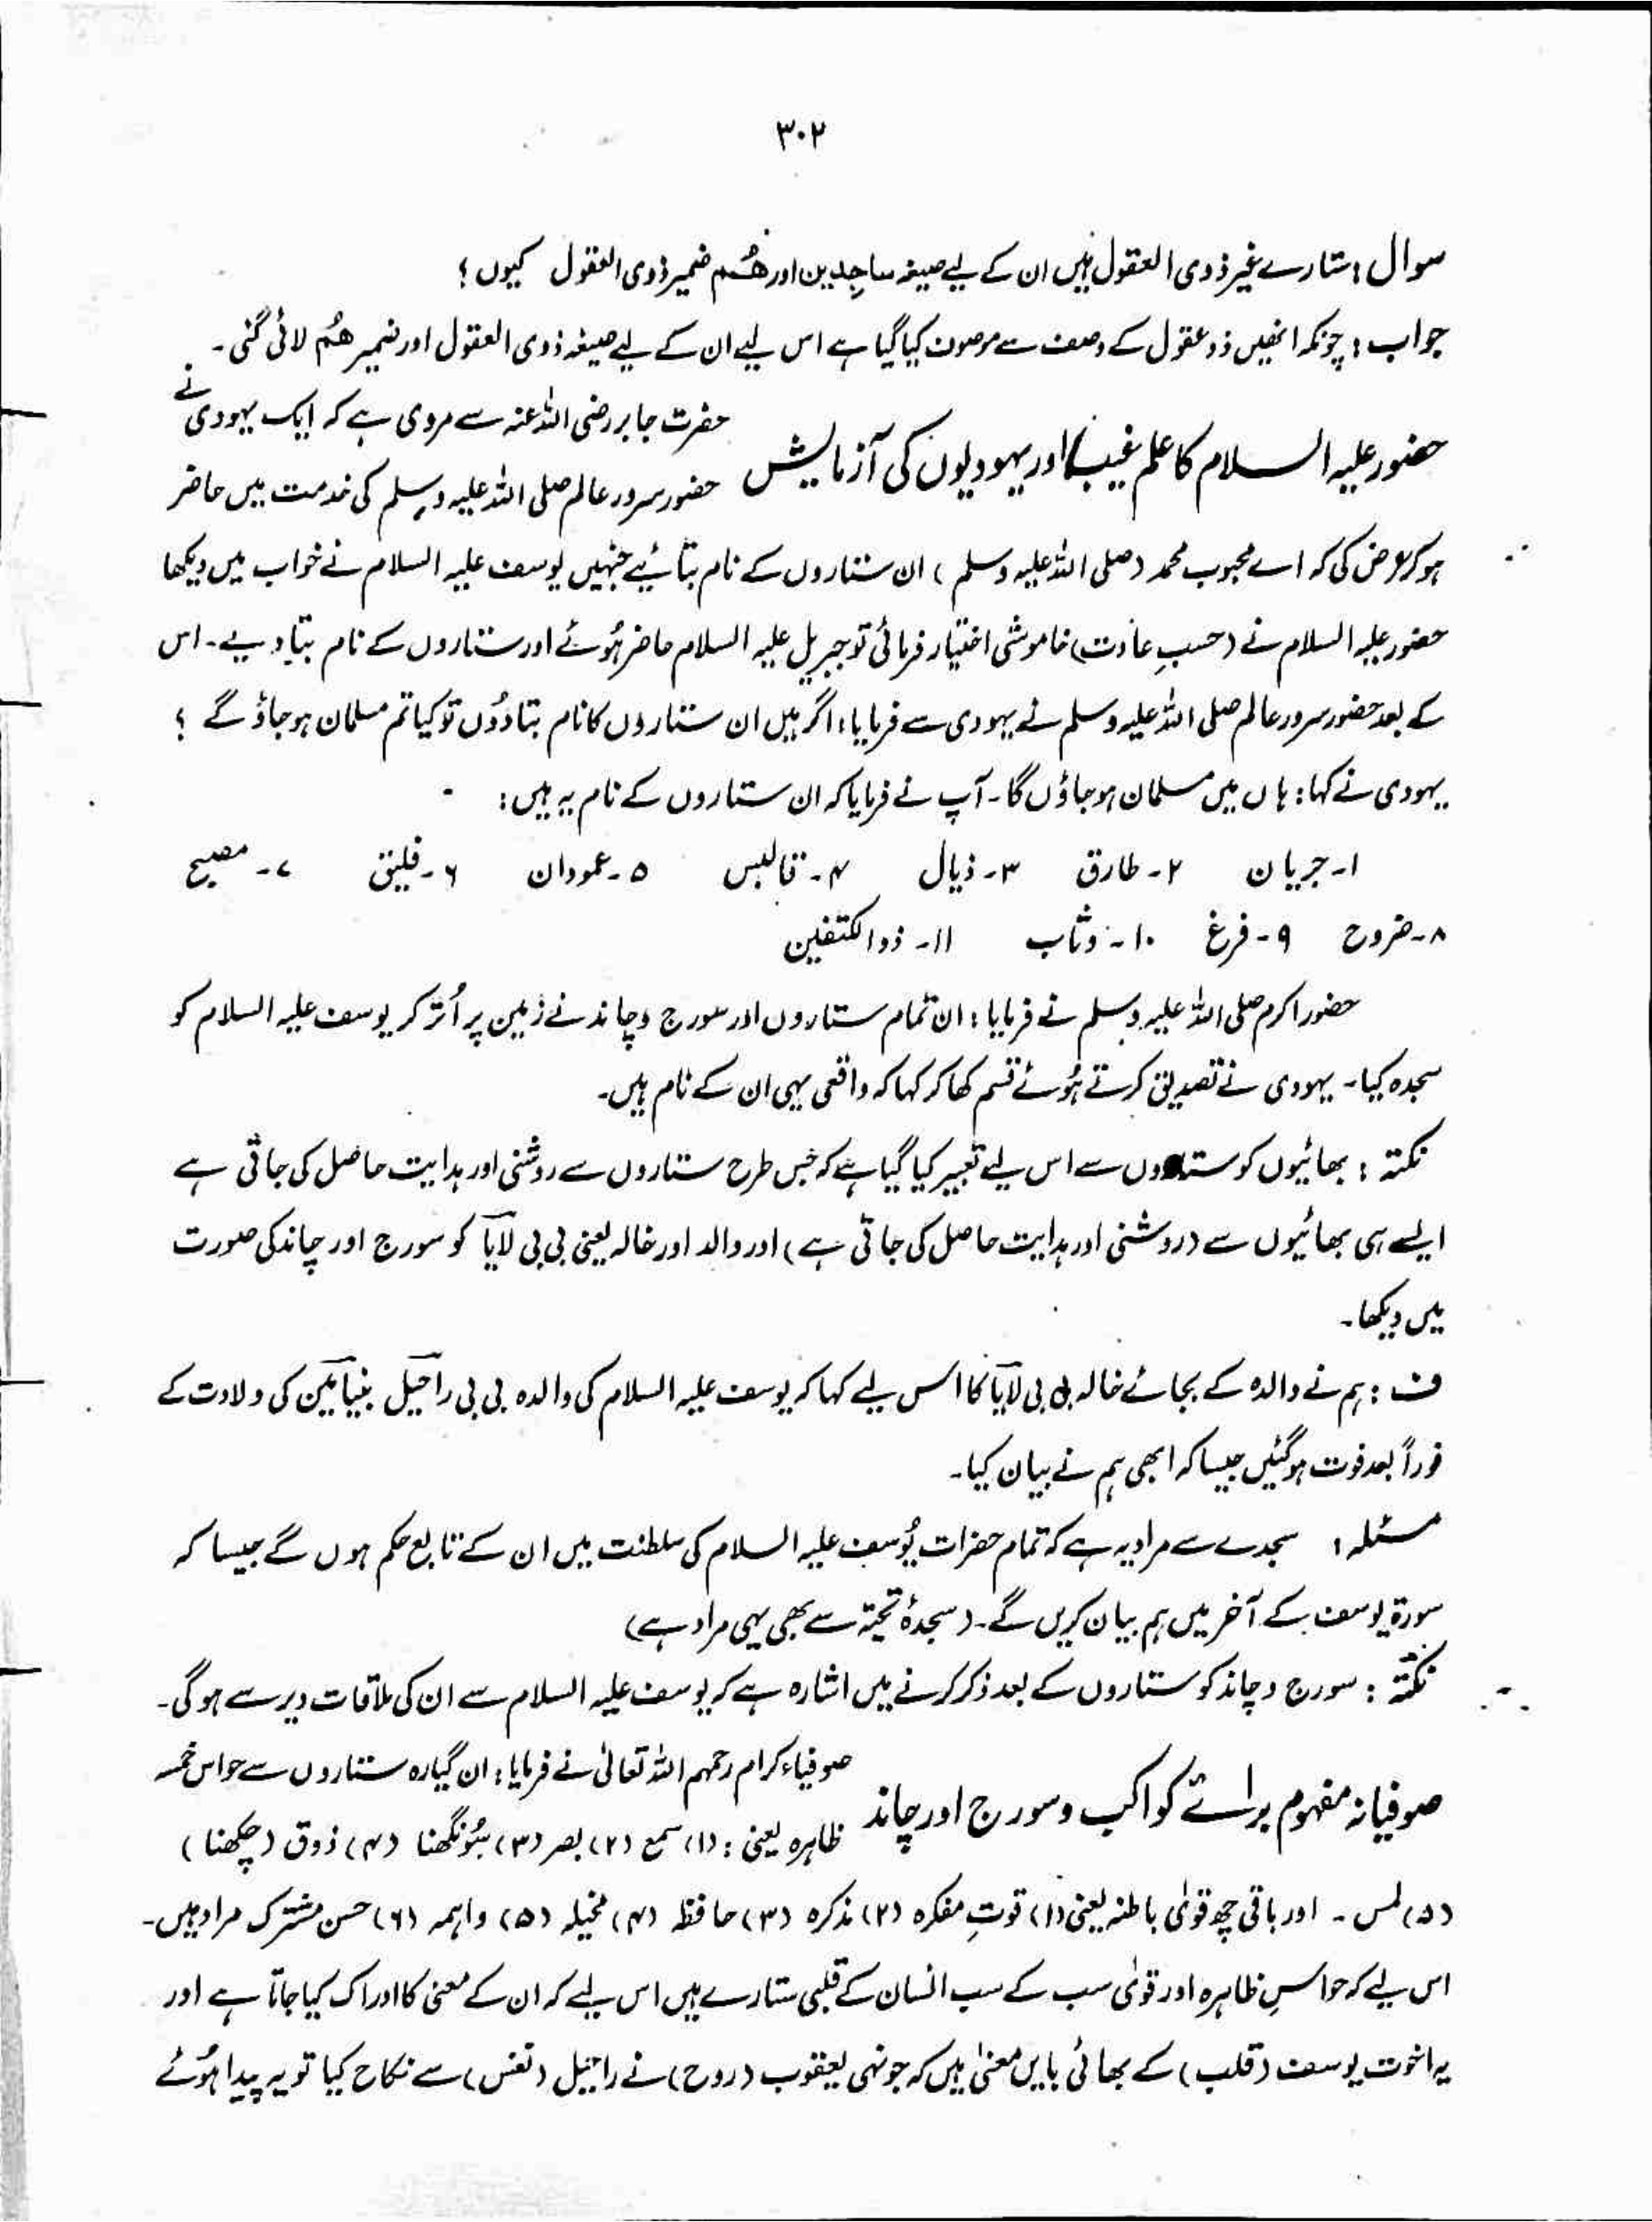 ۳۰۲
سوال : ستارے غیر ذوی العقول ہیں ان کے لیے صیغہ ساجدین اور ھُم ضمیر ذوی العقول کیوں ؟
جواب : چونکہ انھیں ذو عقول کے وصف سے موصوف کیا گیا ہے اس لیے ان کے لیے صیغہ ذوی العقول اور ضمیر ھُم لائی گئی ۔
حضور علیہ السلام کا علم غیب اور یہودیوں کی آزمایش
حضرت جابر رضی اللہ عنہ سے مروی ہے کہ ایک یہودی نے
حضور سرور عالم صلی اللہ علیہ وسلم کی خدمت میں حاضر
ہو کر عرض کی کہ اے محبوب محمد (صلی اللہ علیہ وسلم) ان ستاروں کے نام بتائیے جنہیں یوسف علیہ السلام نے خواب میں دیکھا
حضور علیہ السلام نے (حسبِ عادت) خاموشی اختیار فرمائی تو جبریل علیہ السلام حاضر ہُوئے اور ستاروں کے نام بتا دیے ۔ اس
کے بعد حضور سرور عالم صلی اللہ علیہ وسلم نے یہودی سے فرمایا : اگر میں ان ستاروں کا نام بتا دُوں تو کیا تم مسلمان ہو جاؤ گے ؟
یہودی نے کہا : ہاں میں مسلمان ہو جاؤں گا ۔ آپ نے فرمایا کہ ان ستاروں کے نام یہ ہیں :
۱۔ جریان ۲۔ طارق ۳۔ ذیال ۴۔ قالبس ۵۔ عمودان ۶۔ فلیق ۷۔ مصبح
۸۔ ضروح ۹۔ فرغ ۱۰۔ وثاب ۱۱۔ ذوالکتفین
حضور اکرم صلی اللہ علیہ وسلم نے فرمایا : ان تمام ستاروں اور سورج و چاند نے زمین پر اُتر کر یوسف علیہ السلام کو
سجدہ کیا ۔ یہودی نے تصدیق کرتے ہُوئے قسم کھا کر کہا کہ واقعی یہی ان کے نام ہیں ۔
نکتہ : بھائیوں کو ستاروں سے اس لیے تعبیر کیا گیا ہے کہ جس طرح ستاروں سے روشنی اور ہدایت حاصل کی جاتی ہے
ایسے ہی بھائیوں سے (روشنی اور ہدایت حاصل کی جاتی ہے) اور والد اور خالہ یعنی بی بی لایا کو سورج اور چاند کی صورت
میں دیکھا ۔
ف : ہم نے والدہ کے بجائے خالہ بی بی لایا کا اس لیے کہا کہ یوسف علیہ السلام کی والدہ بی بی راحیل بنیامین کی ولادت کے
فوراً بعد فوت ہو گئیں جیسا کہ ابھی ہم نے بیان کیا ۔
مسئلہ : سجدے سے مراد یہ ہے کہ تمام حضرات یُوسف علیہ السلام کی سلطنت میں ان کے تابع حکم ہوں گے جیسا کہ
سورۃ یوسف کے آخر میں ہم بیان کریں گے ۔ (سجدۂ تحیّۃ سے بھی یہی مراد ہے)
نکتہ : سورج و چاند کو ستاروں کے بعد ذکر کرنے میں اشارہ ہے کہ یوسف علیہ السلام سے ان کی ملاقات دیر سے ہو گی ۔
صوفیانہ مفہوم برائے کواکب و سورج اور چاند
صوفیاء کرام رحمہم اللہ تعالیٰ نے فرمایا : ان گیارہ ستاروں سے حواس خمسہ
ظاہرہ یعنی : (۱) سمع (۲) بصر (۳) سُونگھنا (۴) ذوق (چکھنا)
(۵) لمس ۔ اور باقی چھ قویٰ باطنہ یعنی (۱) قوتِ مفکرہ (۲) مذکرہ (۳) حافظہ (۴) مخیلہ (۵) واہمہ (۶) حسن مشترک مراد ہیں ۔
اس لیے کہ حواسِ ظاہرہ اور قویٰ سب کے سب انسان کے قلبی ستارے ہیں اس لیے کہ ان کے معنی کا ادراک کیا جاتا ہے اور
یہ اخوت یوسف (قلب) کے بھائی بایں معنیٰ ہیں کہ جونہی یعقوب (روح) نے راحیل (نفس) سے نکاح کیا تو یہ پیدا ہُوئے